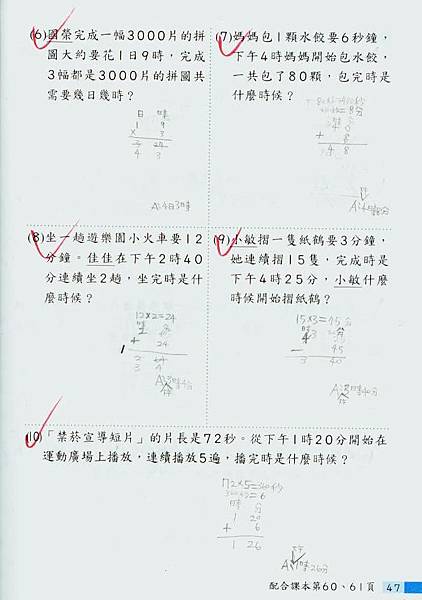 (6)國榮完成一幅3000片的拼
圖大約要花1日9時，完成
3幅都是3000片的拼圖共
需要幾日幾時？
日 時
1 9
× 3
3 27
4 3
A:4日3時
(7)媽媽包1顆水餃要6秒鐘，
下午4時媽媽開始包水餃，
一共包了80顆，包完時是
什麼時候？
(8)坐一趟遊樂園小火車要12
分鐘。佳佳在下午2時40
分連續坐2趟，坐完時是什
麼時候？
12×2=24
+ 24
(9)小敏摺一隻紙鶴要3分鐘，
她連續摺15隻，完成時是
下午4時25分，小敏什麼
時候開始摺紙鶴？
15×3=45分
- 45
3 40
(10)「禁菸宣導短片」的片長是72秒。從下午1時20分開始在
運動廣場上播放，連續播放5遍，播完時是什麼時候？
72×5=360秒
時 分
1 20
+ 6
1 26
配合課本第60、61頁 47